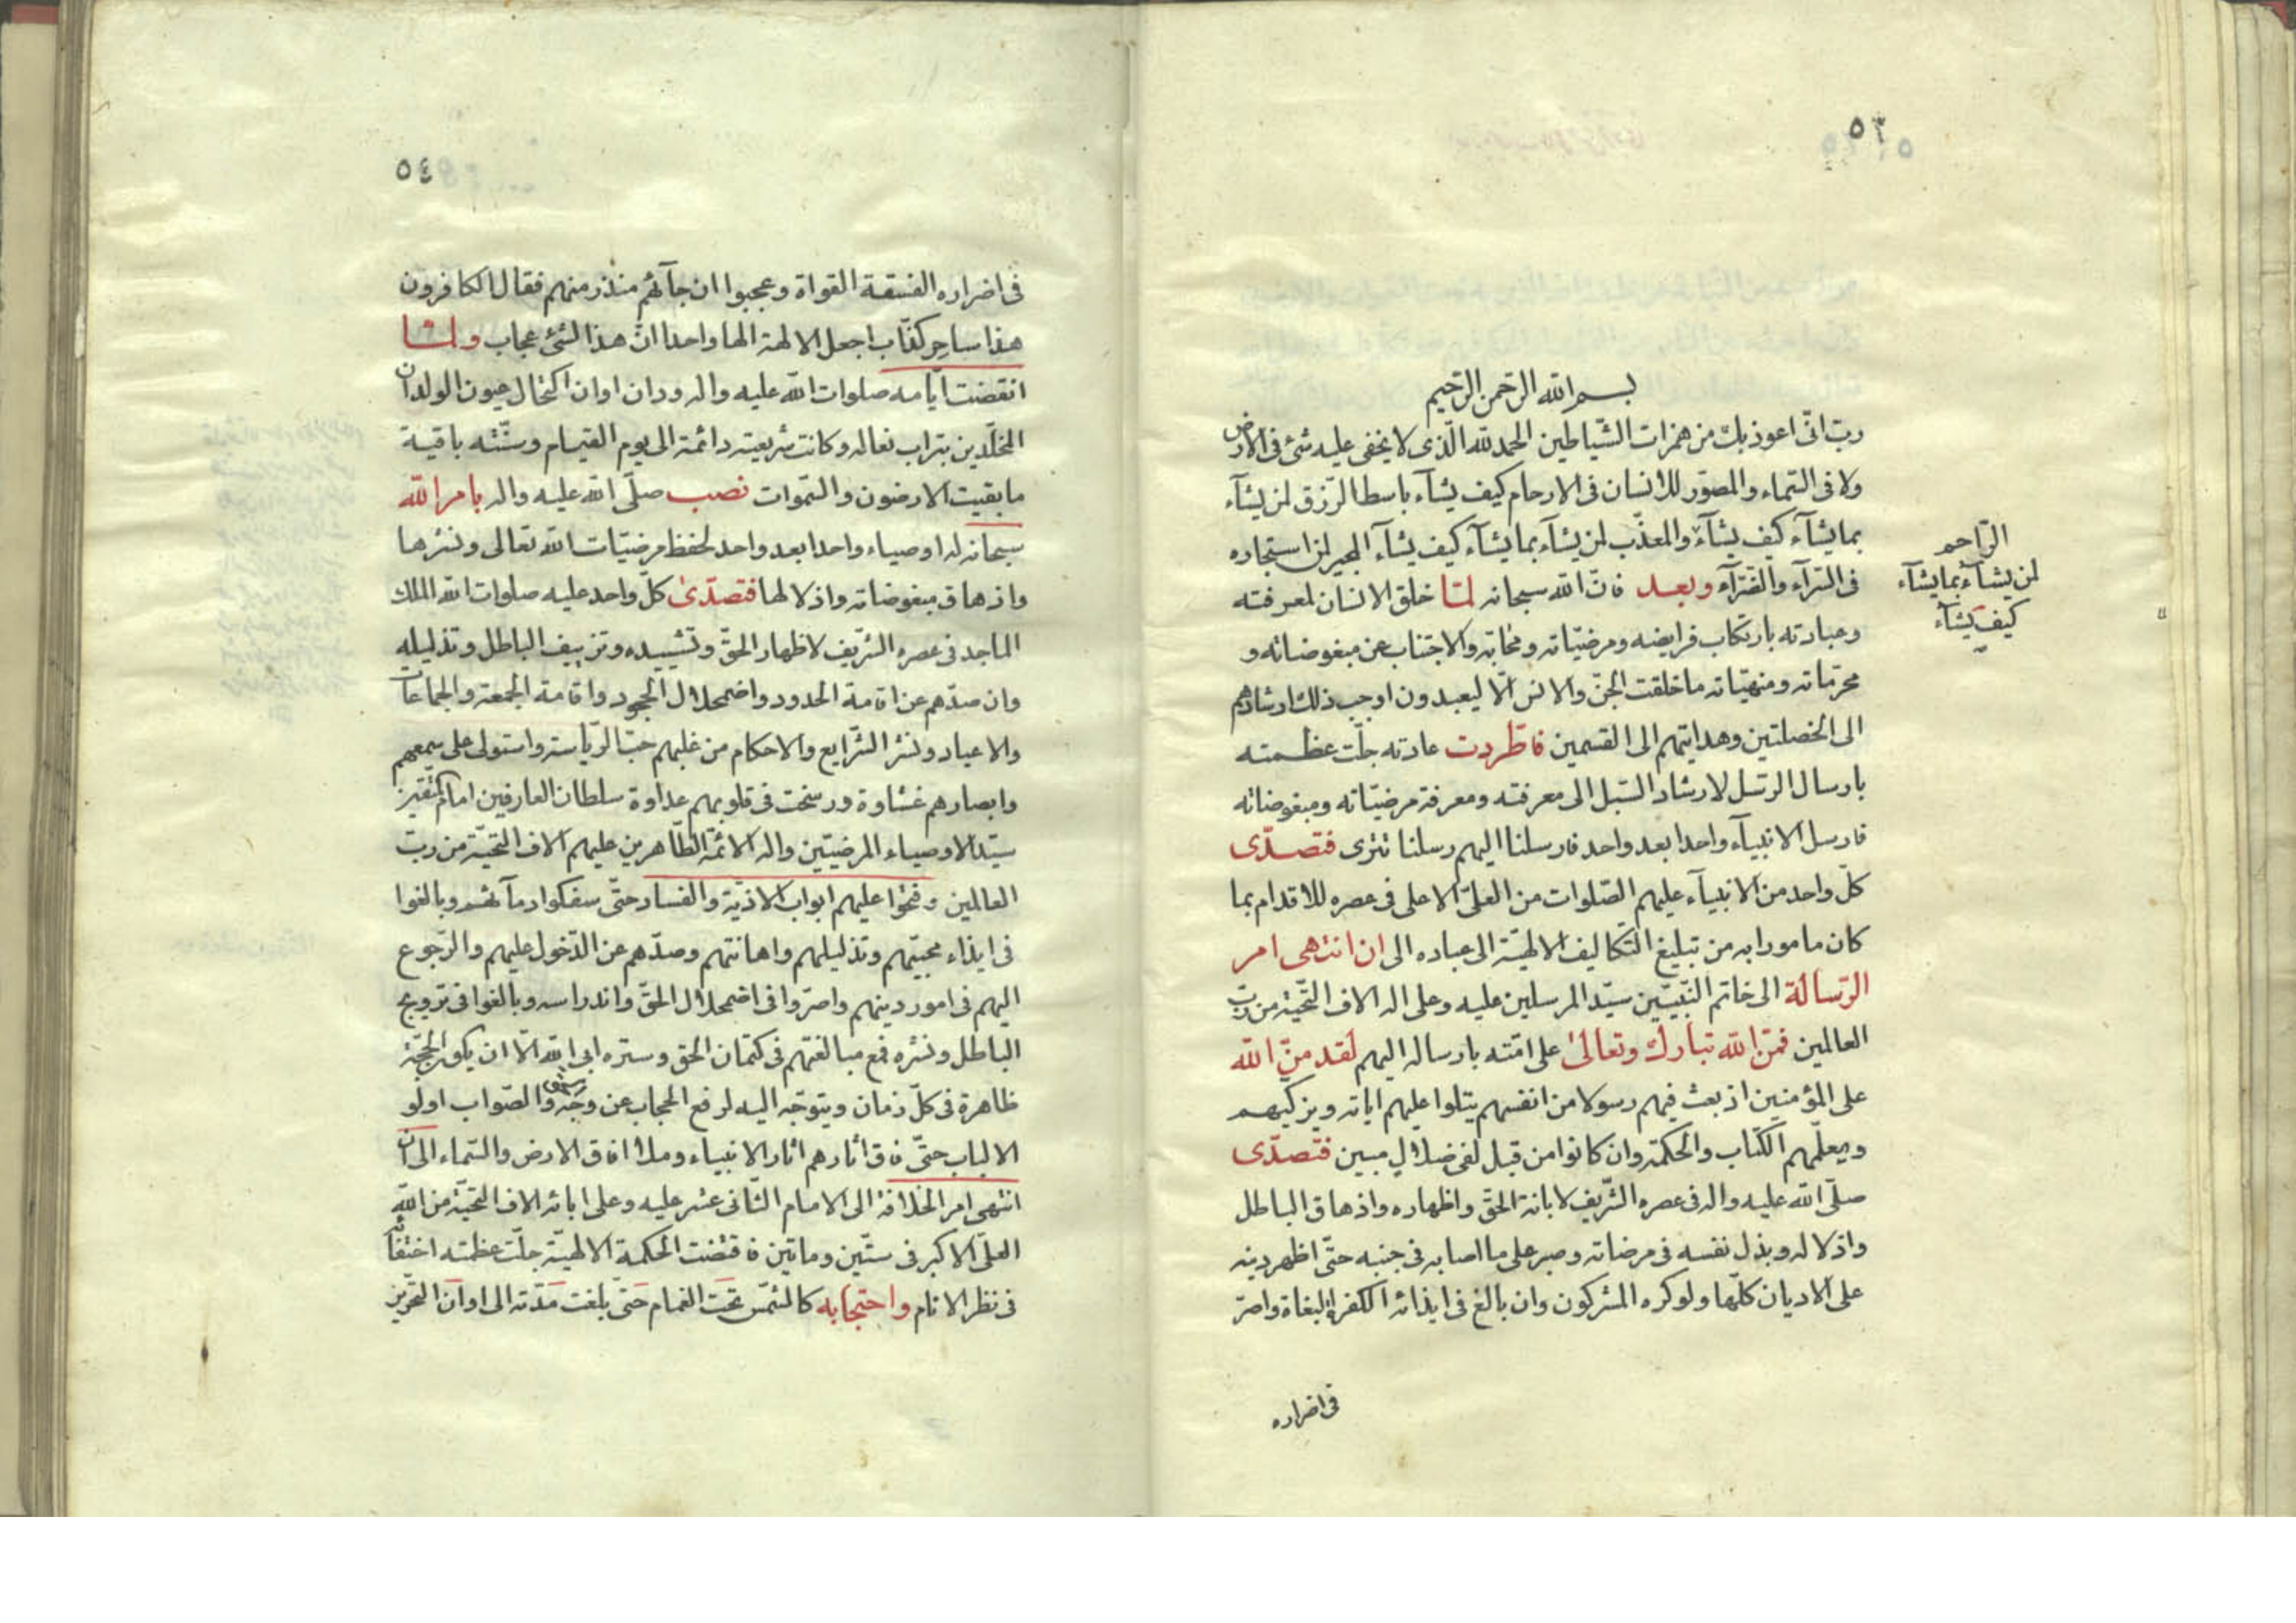 ٥٣
بسم الله الرحمن الرحيم
ربّ انّى اعوذ بك من همزات الشّياطين الحمد لله الّذى لا يخفى عليه شئ فى الارض
ولا فى السّماء والمصوّر للانسان فى الارحام كيف يشآء باسط الرّزق لمن يشآء
بما يشآء كيف يشآء والمعذّب لمن يشآء بما يشآء كيف يشآء المجير لمن استجاره
الرّاحم
لمن يشآء بما يشآء
كيف يشآء
فى السّرّآء والضّرّآء وبعد فانّ الله سبحانه لمّا خلق الانسان لمعرفته
وعبادته بارتكاب فرايضه ومرضيّاته ومحابّه والاجتناب عن مبغوضاته و
محرّماته ومنهيّاته ما خلقت الجنّ والانس الّا ليعبدون اوجب ذلك ارشادهم
الى الخصلتين وهدايتهم الى القسمين فاطّردت عادته جلّت عظمته
بارسال الرّسل لارشاد السّبل الى معرفته ومعرفة مرضيّاته ومبغوضاته
فارسل الانبيآء واحدا بعد واحد فارسلنا اليهم رسلنا تترى فتصدّى
كلّ واحد من الانبيآء عليهم الصّلوات من العلىّ الاعلى فى عصره للاقدام بما
كان مامورا به من تبليغ التّكاليف الالهيّة الى عباده الى ان انتهى امر
الرّسالة الى خاتم النّبيّين سيّد المرسلين عليه وعلى اله الاف التّحيّة من ربّ
العالمين فمنّ الله تبارك وتعالى على امّته بارساله اليهم لقد منّ الله
على المؤمنين اذ بعث فيهم رسولا من انفسهم يتلوا عليهم اياته ويزكّيهم
ويعلّمهم الكتاب والحكمة وان كانوا من قبل لفى ضلال مبين فتصدّى
صلّى الله عليه واله فى عصره الشّريف لابانة الحقّ واظهاره واذهاق الباطل
واذلاله وبذل نفسه فى مرضاته وصبر على ما اصابه فى جنبه حتّى اظهر دينه
على الاديان كلّها ولو كره المشركون وان بالغ فى ايذائه الكفرة البغاة واصرّ
فى اضراره
٥٤
فى اضراره الفسقة الغواة وعجبوا ان جآئهم منذر منهم فقال الكافرون
هذا ساحر كذّاب اجعل الالهة الها واحدا انّ هذا لشئ عجاب ولمّا
انقضت ايّامه صلوات الله عليه واله ودان اوان اكتحال عيون الولدان
المخلّدين بتراب نعاله وكانت شريعته دائمة الى يوم القيام وسنّته باقية
ما بقيت الارضون والسّموات نصب صلّى الله عليه واله بامر الله
سبحانه له اوصياء واحدا بعد واحد لحفظ مرضيّات الله تعالى ونشرها
واذهاق مبغوضاته واذلالها فتصدّى كلّ واحد عليه صلوات الله الملك
الماجد فى عصره الشّريف لاظهار الحقّ وتشييده وتزييف الباطل وتذليله
وان صدّهم عن اقامة الحدود واضمحلال الجحود واقامة الجمعة والجماعات
والاعياد ونشر الشّرايع والاحكام من غلبهم حبّ الرّياسة واستولى على سمعهم
وابصارهم غشاوة ورسخت فى قلوبهم عداوة سلطان العارفين امام المتّقين
سيّد الاوصياء المرضيّين واله الائمّة الطّاهرين عليهم الاف التّحيّة من ربّ
العالمين وفتحوا عليهم ابواب الاذيّة والفساد حتّى سفكوا دمآئهم وبالغوا
فى ايذاء محبّيهم وتذليلهم واهانتهم وصدّهم عن الدّخول عليهم والرّجوع
اليهم فى امور دينهم واصرّوا فى اضمحلال الحقّ واندراسه وبالغوا فى ترويج
الباطل ونشره فمع مبالغتهم فى كتمان الحق وستره ابى الله الّا ان يكون الحجّة
ظاهرة فى كلّ زمان ويتوجّه اليه لرفع الحجاب عن وجه والصّواب اولو
الالباب حتّى فاق اثارهم اثار الانبياء وملأ افاق الارض والسّماء الى ان
انتهى امر الخلافة الى الامام الثّانى عشر عليه وعلى ابائه الاف التّحيّة من الله
العلىّ الاكبر فى ستّين وماتين فاقتضت الحكمة الالهيّة جلّت عظمته اختفائه
فى نظر الانام واحتجابه كالشّمس تحت الغمام حتّى بلغت مدّته الى اوان